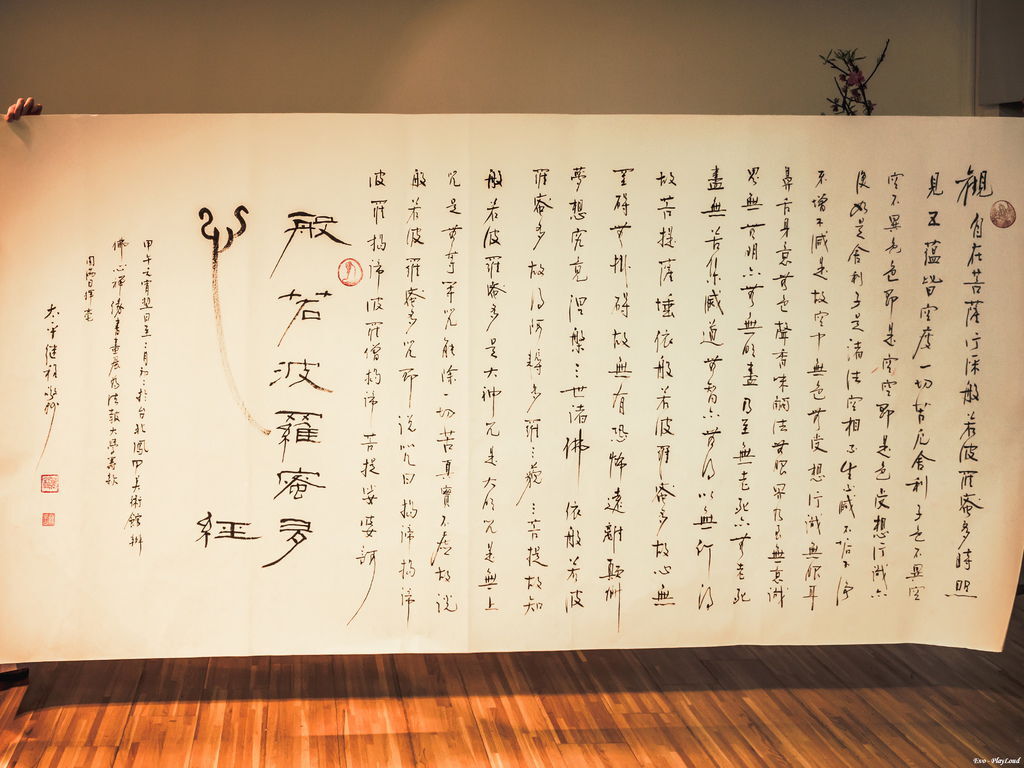 觀自在菩薩行深般若波羅蜜多時照
見五蘊皆空度一切苦厄舍利子色不異空
空不異色色即是空空即是色受想行識亦
復如是舍利子是諸法空相不生不滅不垢不淨
不增不減是故空中無色無受想行識無眼耳
鼻舌身意無色聲香味觸法無眼界乃至無意識
界無無明亦無無明盡乃至無老死亦無老死
盡無苦集滅道無智亦無得以無所得
故菩提薩埵依般若波羅蜜多故心無
罣礙無掛礙故無有恐怖遠離顛倒
夢想究竟涅槃三世諸佛依般若波
羅蜜多故得阿耨多羅三藐三菩提故知
般若波羅蜜多是大神咒是大明咒是無上
咒是無等等咒能除一切苦真實不虛故說
般若波羅蜜多咒即說咒曰揭諦揭諦
波羅揭諦波羅僧揭諦菩提娑婆訶
般若波羅蜜多
心經
甲午
佛心禪
Evo - PlayLoud